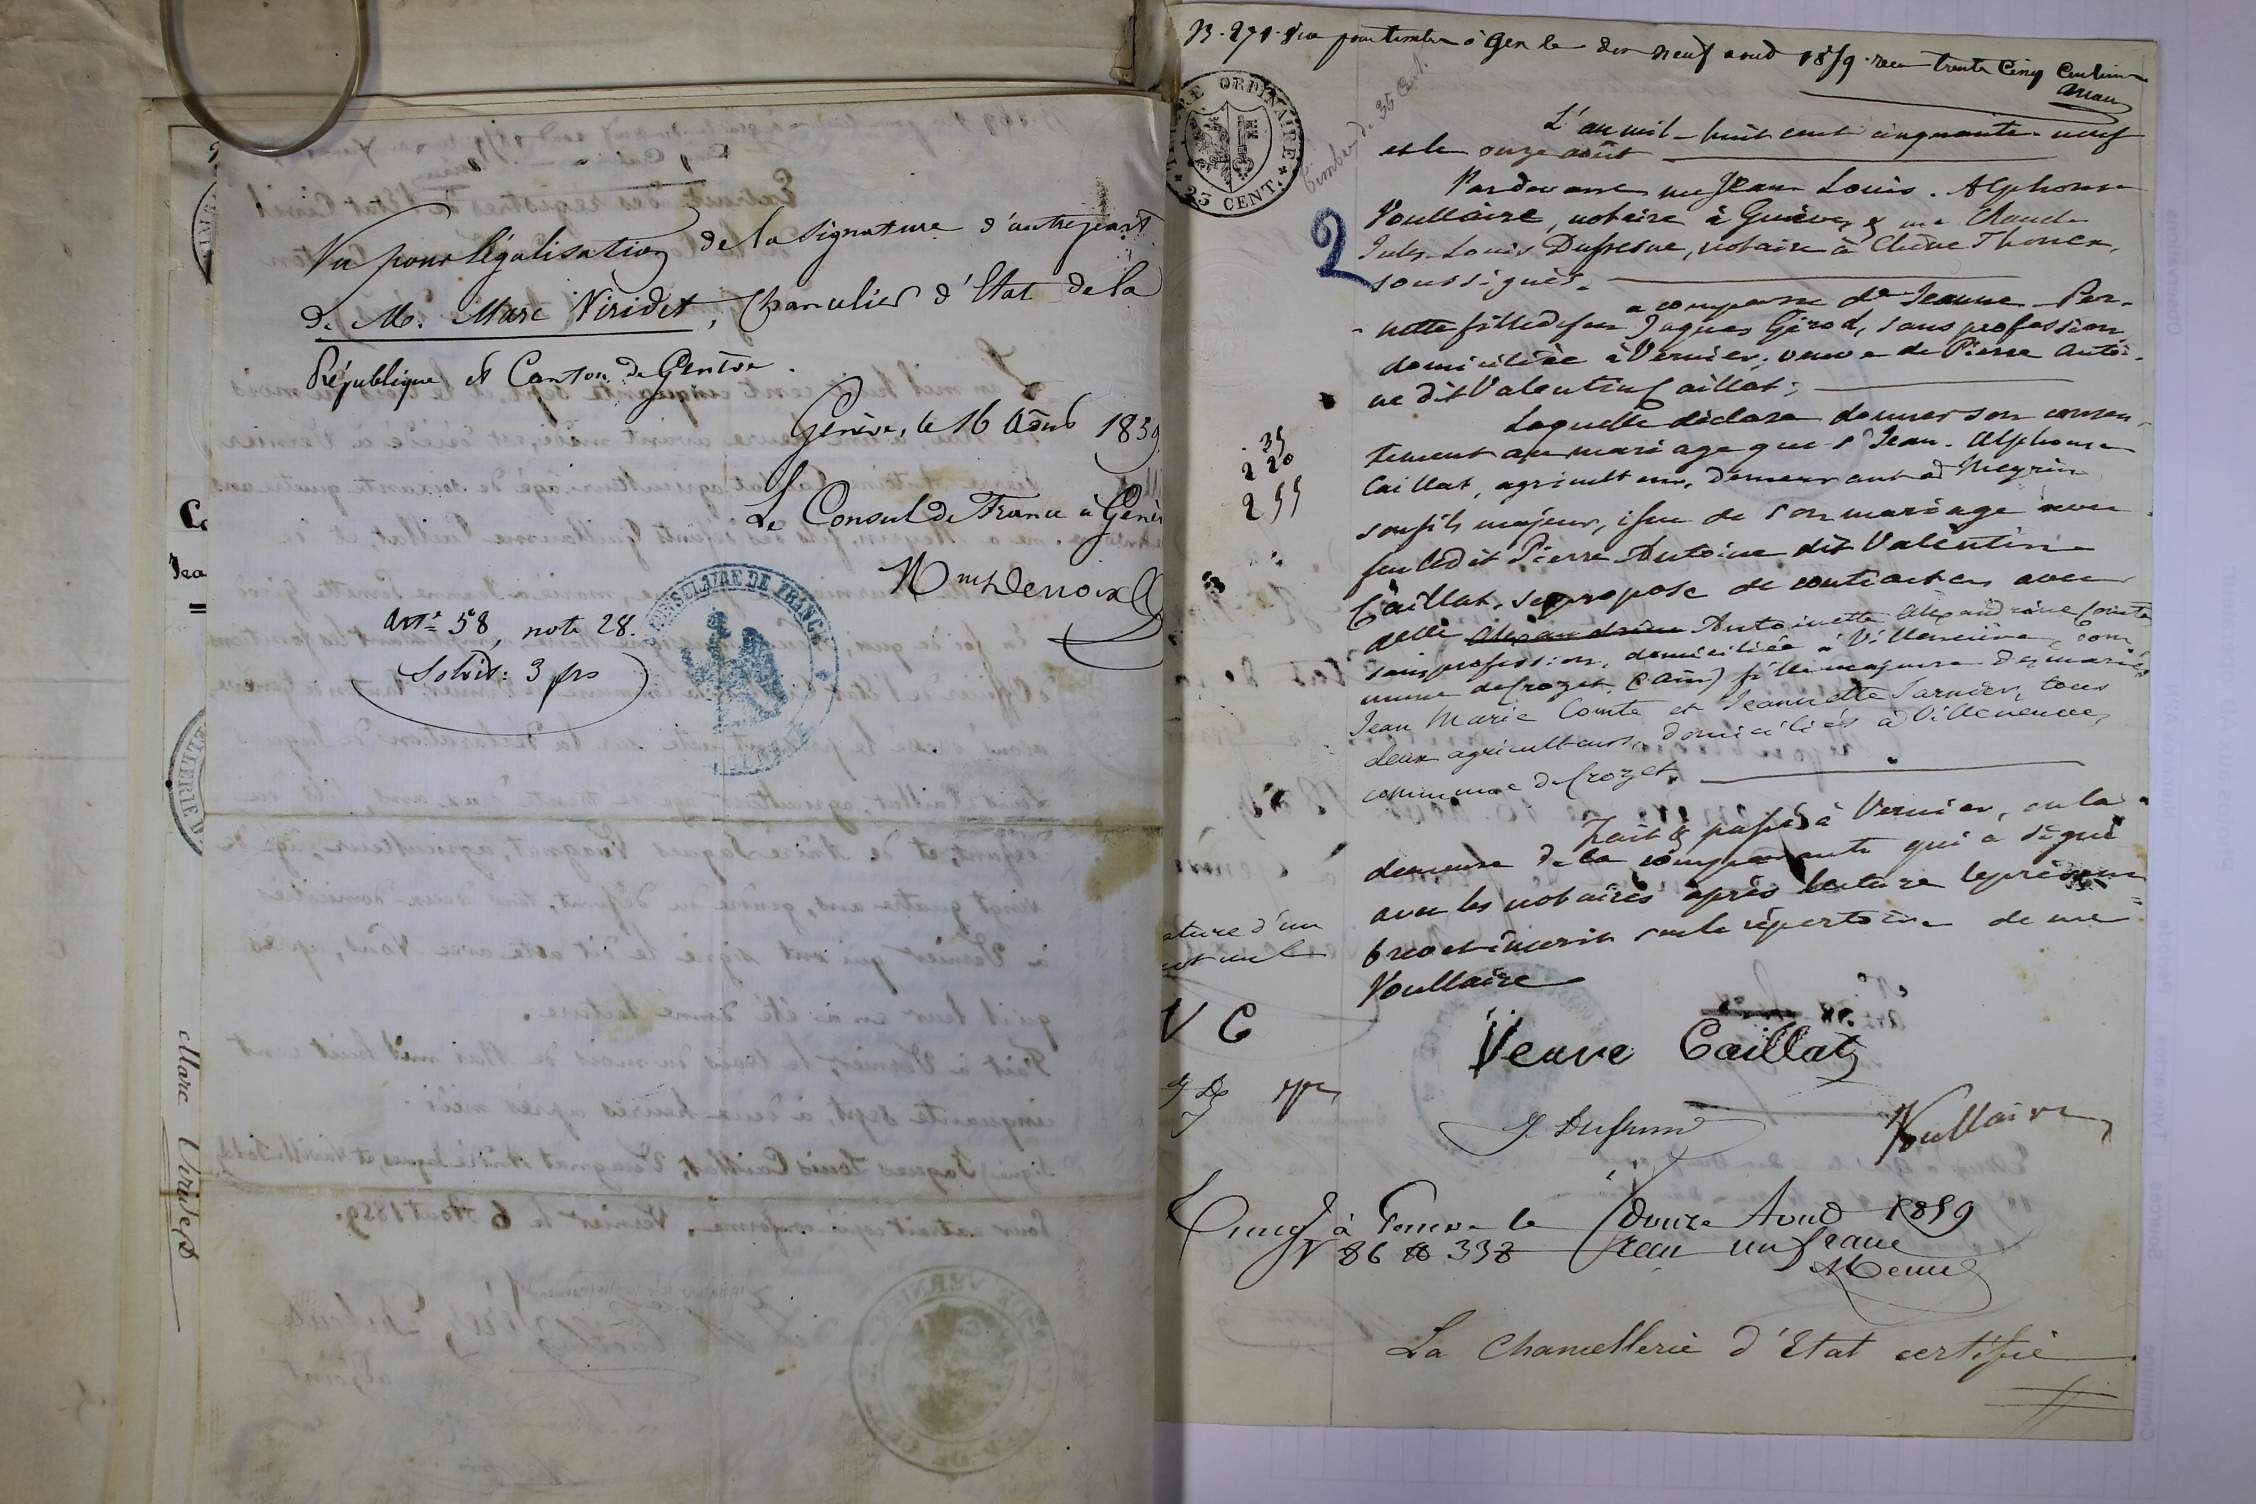 Vu pour légalisation de la signature d'autre part
de M. Marc Viridet, Chancelier d'Etat de la
République et Canton de Genève.
Genève, le 16 Août 1859.
Le Consul de France à Genèv
Art: 58, note 28.
Soldé: 3 frs
CONSULAIRE DE FRANCE
GENÈVE
Marc Viridet
ature d'un
V C
B. 271. Vu pour timbre à Gex le dix neuf aoud 1859. reçu trente Cinq Centimes
TIMBRE ORDINAIRE
25 CENT.
Timbre de 35 Cent.
2
L'an mil-huit cent cinquante-neuf
et le onze août
Pardevant me Jean Louis Alphonse
Voullaire, notaire à Genève, & me Claude
Jules Louis Dufresne, notaire à Chêne Thonex,
soussignés.
a comparu de Jeanne Per-
nette fille de feu Jaques Girod, sans profession
domiciliée à Vernier, veuve de Pierre Antoi-
ne dit Valentin Caillat;
Laquelle déclare donner son consen-
tement au mariage que sr Jean-Alphonse
Caillat, agriculteur, demeurant à Meyrin
son fils majeur, issu de son mariage avec
feu ledit Pierre Antoine dit Valentin
Caillat, se propose de contracter avec
delle Alexandrine Antoinette Alexandrine Comte
sans profession, domiciliée à Villeneuve, com-
mune de Crozet, (Ain) fille majeure des mariés
Jean Marie Comte et Jeannette Jarnier, tous
deux agriculteurs, domiciliés à Villeneuve,
commune de Crozet.
35
2 20
2 55
Fait & passé à Vernier, en la
demeure de la comparante qui a signé
avec les notaires après lecture le présent
brevet inscrit sur le répertoire de me
Voullaire
Veuve Caillat
J Dufresne
Voullaire
Enreg à Genève le douze Aoud 1859
V 86 No 338 reçu un franc
La Chancellerie d'Etat certifie